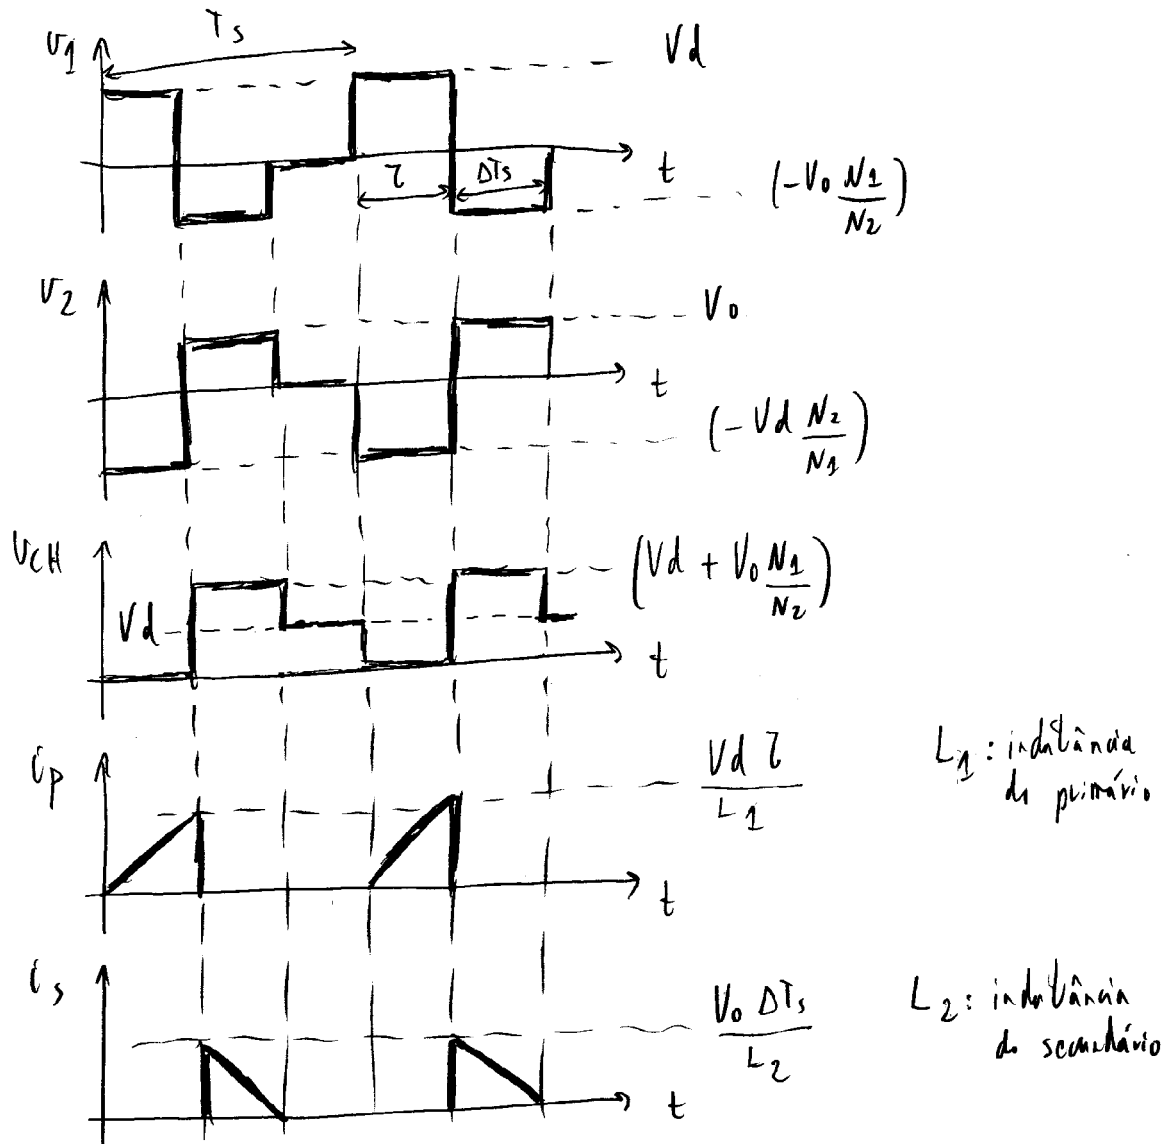 v1
Ts
Vd
t
τ
ΔTs
(-Vo N1/N2)
v2
Vo
t
(-Vd N2/N1)
vCH
(Vd + Vo N1/N2)
Vd
t
ip
Vd τ/L1
L1: indutância
do primário
t
is
Vo ΔTs/L2
L2: indutância
do secundário
t